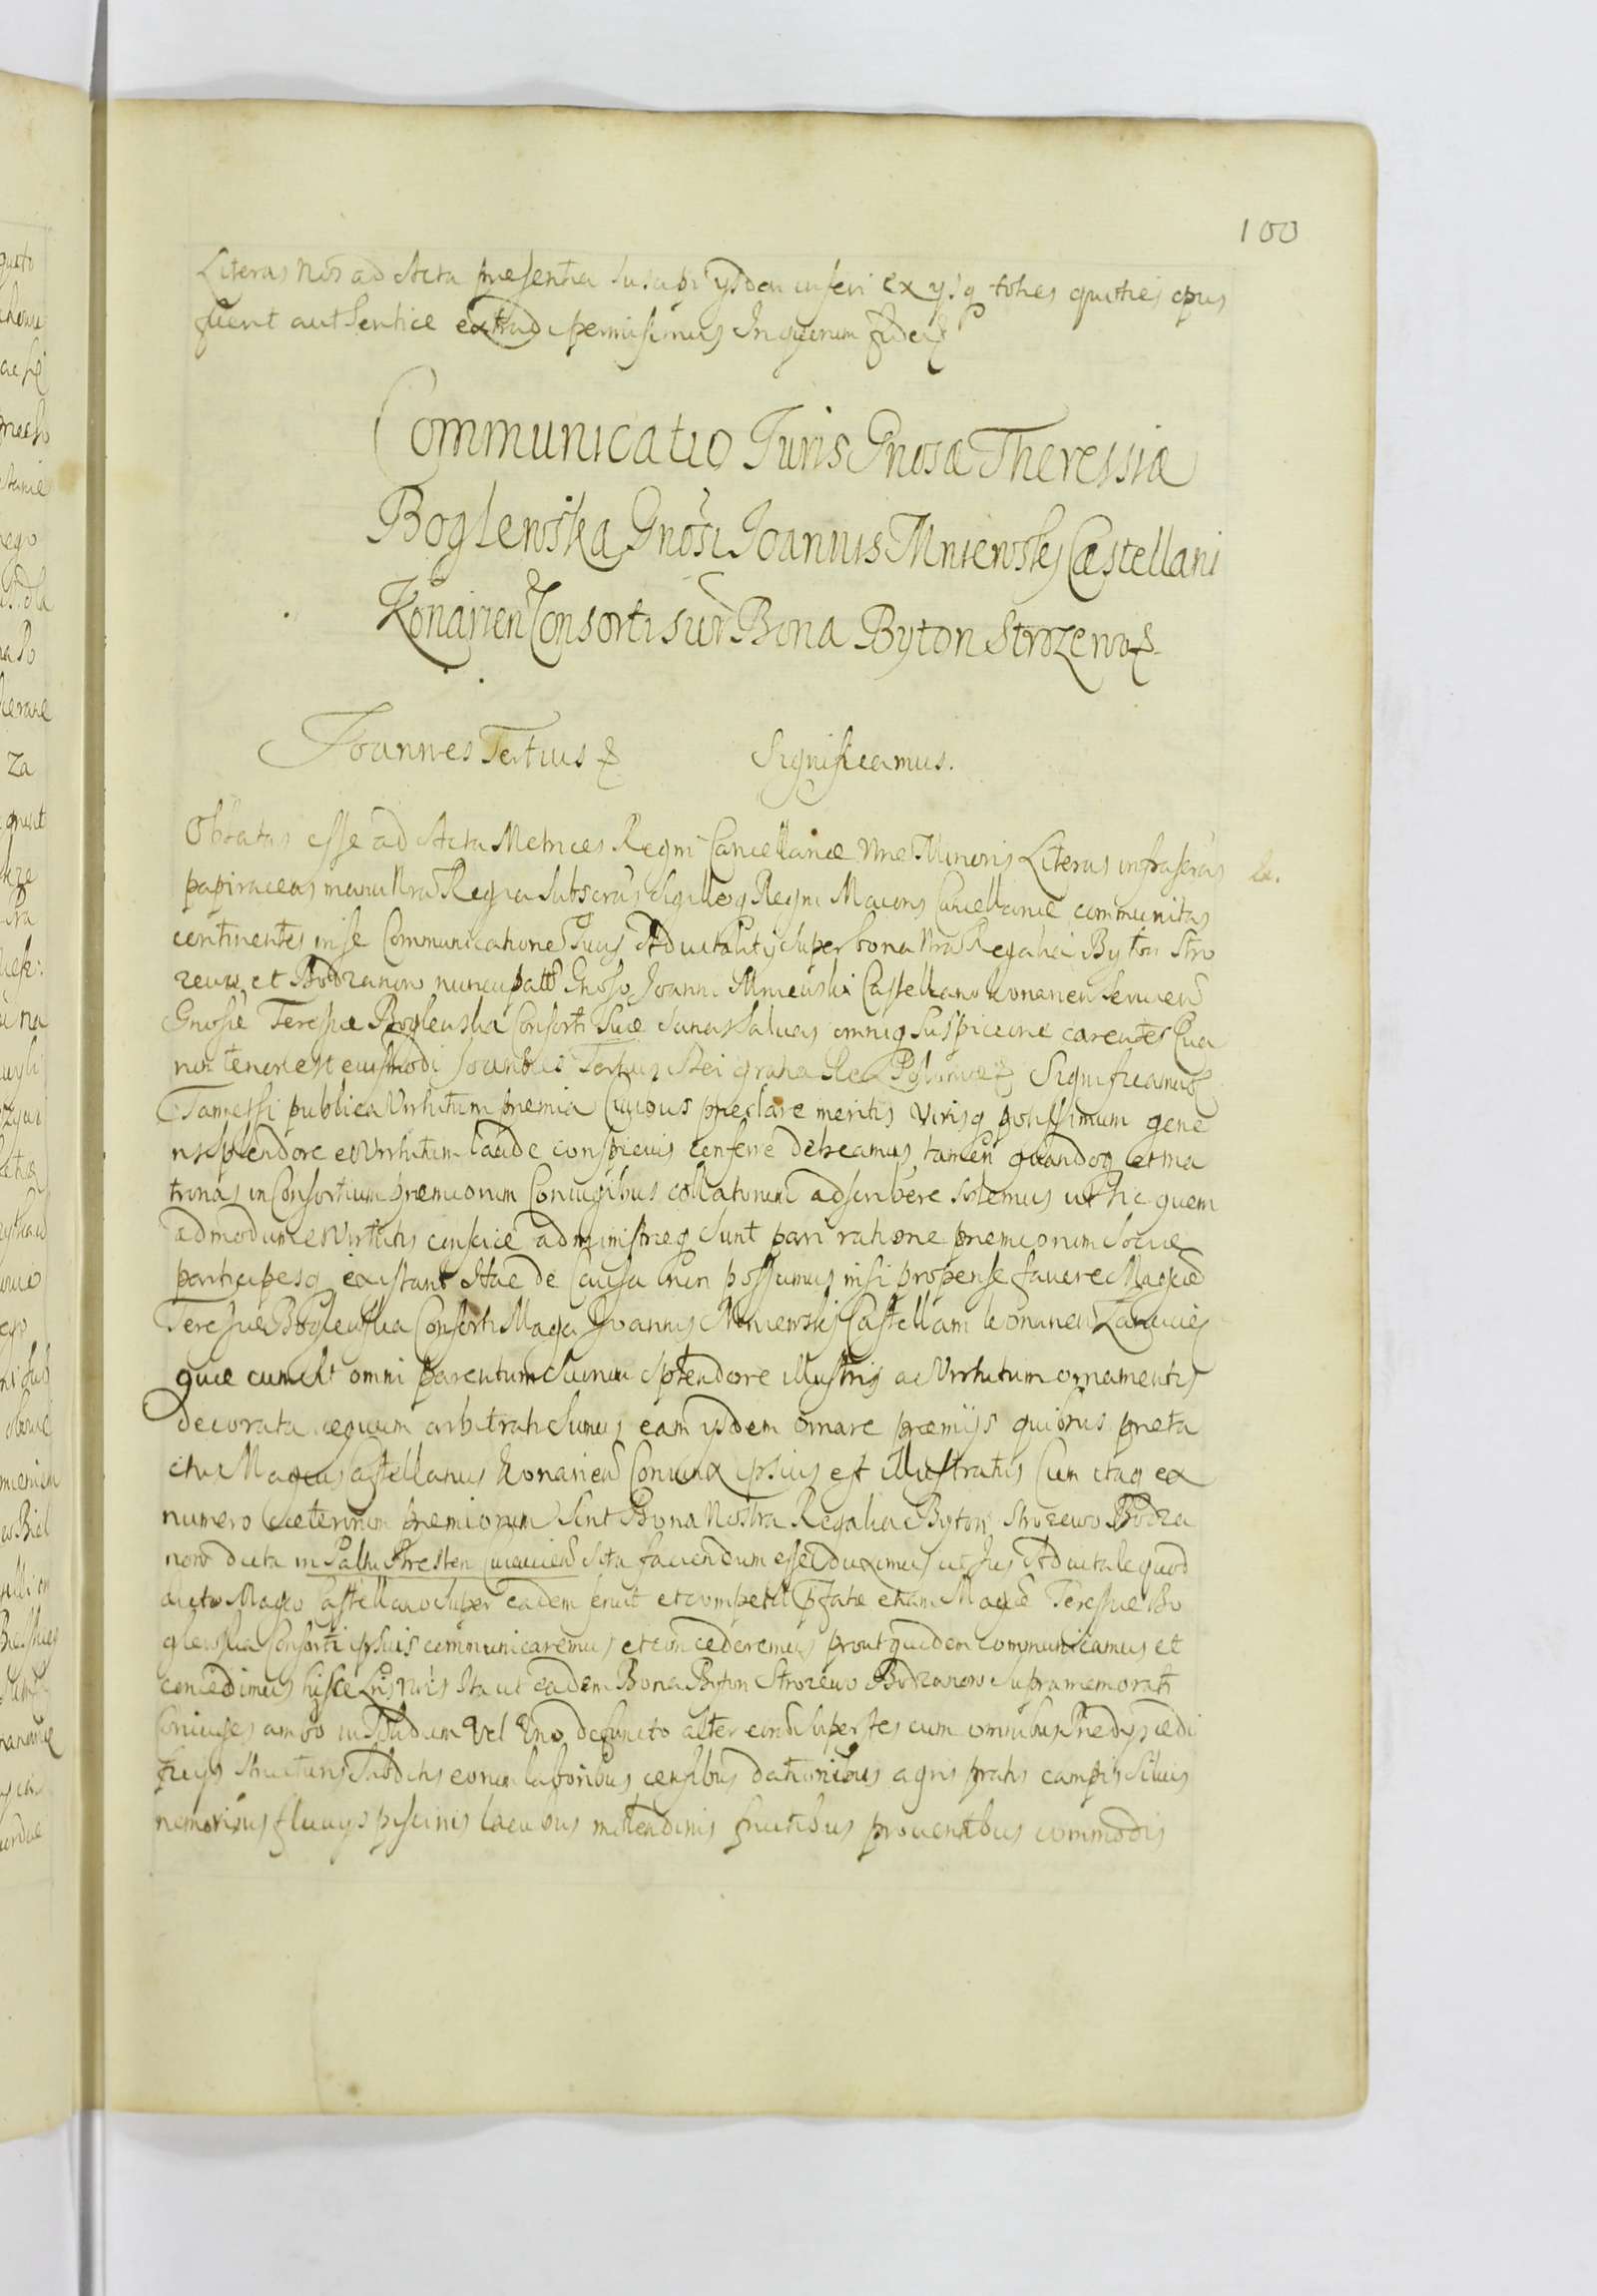 100
Literas nras ad Acta presentia suscipi ysdem inseri ex ysq toties quoties opus
fuerit authentice extradi permisimus In quorum fidem
Communicatio Juris Gnosæ Theressiæ
Boglewska Gnosi Joannis Mniewsky Castellani
Konarien Consorti sup Bona Byton Strozewo
Joannes Tertius Significamus.
Oblatas esse ad Acta Metrices Regni Cancellariæ Nræ Minoris Literas infrascras
papiraceas manu Nra Regia Subscras Sigilloq Regni Maioris Cancellariæ communitas
continentes in se Communicatione Juris Aduitalitys super bona Nra Regalia Byton Stro
zewo et Bodzanow nuncupatt Gnoso Joanni Mniewski Castellano Konarien seruien
Gnosæ Teressiæ Boglewska Consorti Suæ sanas saluas omniq suspicione carentes Qua
rum tenor est eiusmodi Joannes Tertius Dei gratia Rex Poloniæ Significamus
Tametsi publica Virtutum premia Ciuibus preclare meritis Virisq potissimum gene
ris splendore et Virtutum laude conspicuis conferre debeamus tamen quandoq et ma
tronas in Consortium premiorum Coniugibus collatorum adscribere solemus ut sic quem
admodum et Virtutis consciæ administræq sunt pari ratione premiorum sociæ
participesq existant Hac de Causa non possumus nisi propense fauere Magcæ
Teressiæ Boglewska Consorti Magci Joannis Mniewski Castellani Konarien
quæ cum sit omni parentum suorum splendore illustris ac Virtutum ornamentis
decorata æquum arbitrati sumus eam ysdem ornare præmiys quibus præfa
ctus Magcus Castellanus Konarien Coniunx ipsius est illustratus Cum itaq ex
numero cæterorum premiorum sint Bona Nostra Regalia Byton Strozewo Bodza
now dicta in Palttu Bresten Cuiauien sita faciendum esse duximus ut Jus Aduitale quod
dicto Magco Castellano super eadem seruit et competit pfatæ etiam Magcæ Teressiæ Bo
glewska Consorti ipsius communicaremus et concederemus prout quidem communicamus et
concedimus hisce Lris nris Ita ut eadem Bona Byton Strozewo Bodzanow supramemorati
Coniuges ambo insolidum Vel Uno defuncto alter eorum superstes cum omnibus Prædys ædi
ficys structuris Subditis eorum laboribus censibus dationibus agris pratis campis siluis
nemoribus fluuys piscinis lacubus molendinis fructibus prouentibus commodis